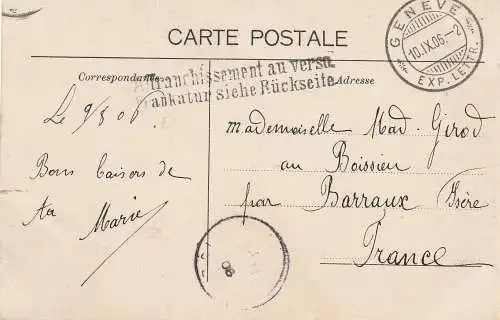 CARTE POSTALE
GENEVE
10.IX.06.-2
EXP. LETTR.
Correspondance
Affranchissement au verso.
Frankatur siehe Rückseite.
Adresse
Le 9/8 06
Bons baisers de
Ta Marie
Mademoiselle Mad. Girod
au Boissieu
par Barraux Isère
France